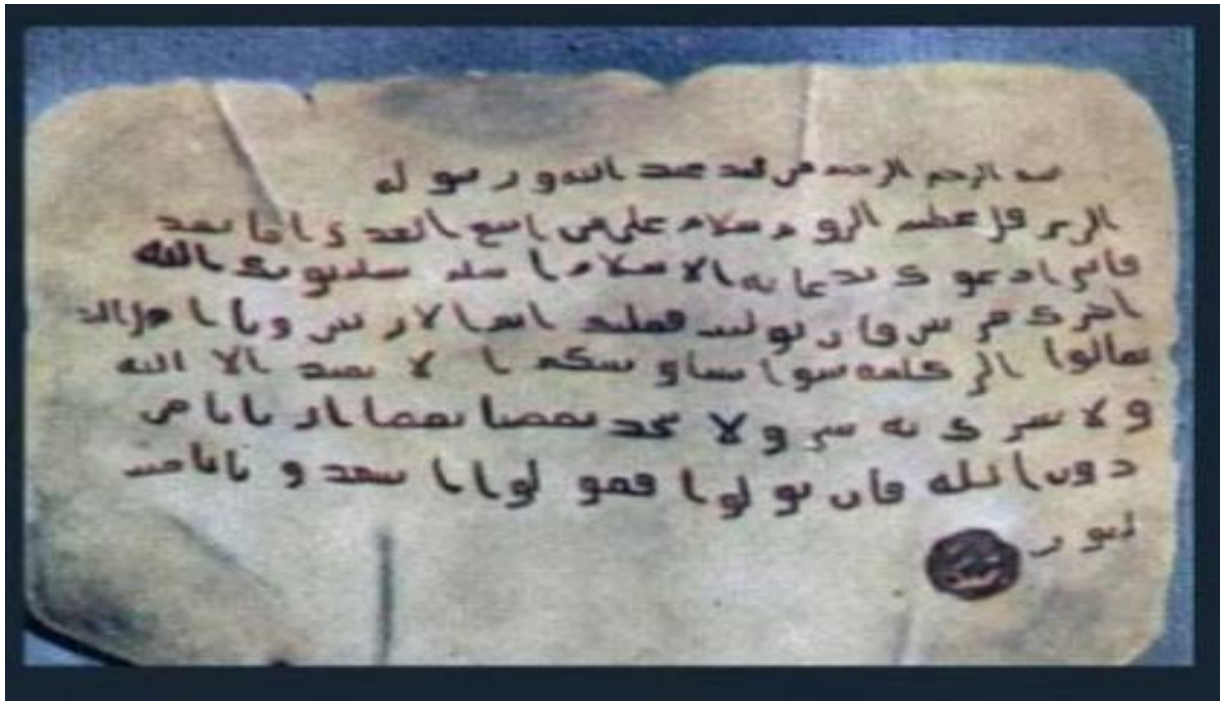 بسم الله الرحمن الرحيم من محمد عبد الله ورسوله
الى هرقل عظيم الروم سلام على من اتبع الهدى اما بعد
فانى ادعوك بدعاية الاسلام اسلم تسلم يوتك الله
اجرك مرتين فان توليت فعليك اثم الاريسين ويا اهل الكتب
تعالوا الى كلمة سوا بيننا وبينكم الا نعبد الا الله
ولا نشرك به شى ولا يتخذ بعضنا بعضا اربابا من
دون الله فان تولوا فقولوا اشهدوا بانا مسلمون